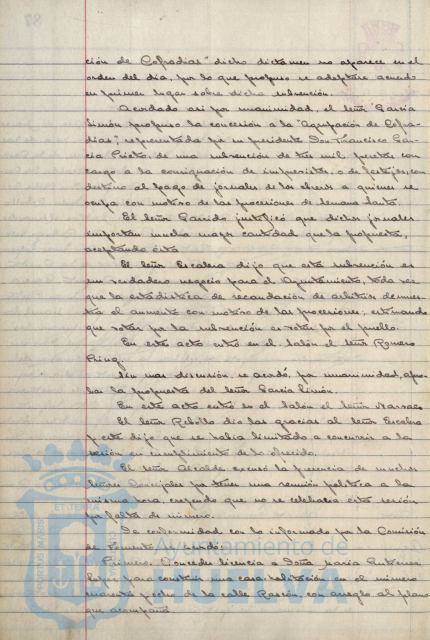 ción de Cofradias" dicho dictamen no aparece en el
orden del dia, por lo que propuso se adoptase acuerdo
en primer lugar sobre dicha subvención.
Acordado asi por unanimidad, el señor Garcia
Limón propuso la concesión a la "Agrupación de Cofra-
dias", representada por su presidente Don Francisco Gar-
cia Prieto, de una subvención de tres mil pesetas con
cargo a la consignación de imprevistos, o de festejos, con
destino al pago de jornales de los obreros a quienes se
ocupa con motivo de las procesiones de Semana Santa.
El señor Garrido justificó que dichos jornales
importan mucha mayor cantidad que la propuesta,
aceptando ésta
El señor Escalera dijo que esta subvención es
un verdadero negocio para el Ayuntamiento, toda vez
que la estadistica de recaudación de arbitrios demues-
tra el aumento con motivo de las procesiones, estimando
que votar por la subvención es votar por el pueblo.
En este acto entró en el salón el señor Romero
Sin mas discusión, se acordó, por unanimidad, apro-
bar la propuesta del señor Garcia Limón.
En este acto entró en el salón el señor Narvaez
El señor Rebollo dio las gracias al señor Escalera
y este dijo que se habia limitado a concurrir a la
sesión en cumplimiento de lo ofrecido.
El señor Alcalde excusó la presencia de muchos
señores Concejales por tener una reunión politica a la
misma hora, creyendo que no se celebraria esta sesión
por falta de número.
De conformidad con lo informado por la Comisión
de Fomento se acordó:
Primero. Conceder licencia a Doña Maria Gutierrez
Lopez para construir una casa habitación en el número
cuarenta y ocho de la calle Rascón, con arreglo al plano
que acompaña.
Ayuntamiento de
HUELVA